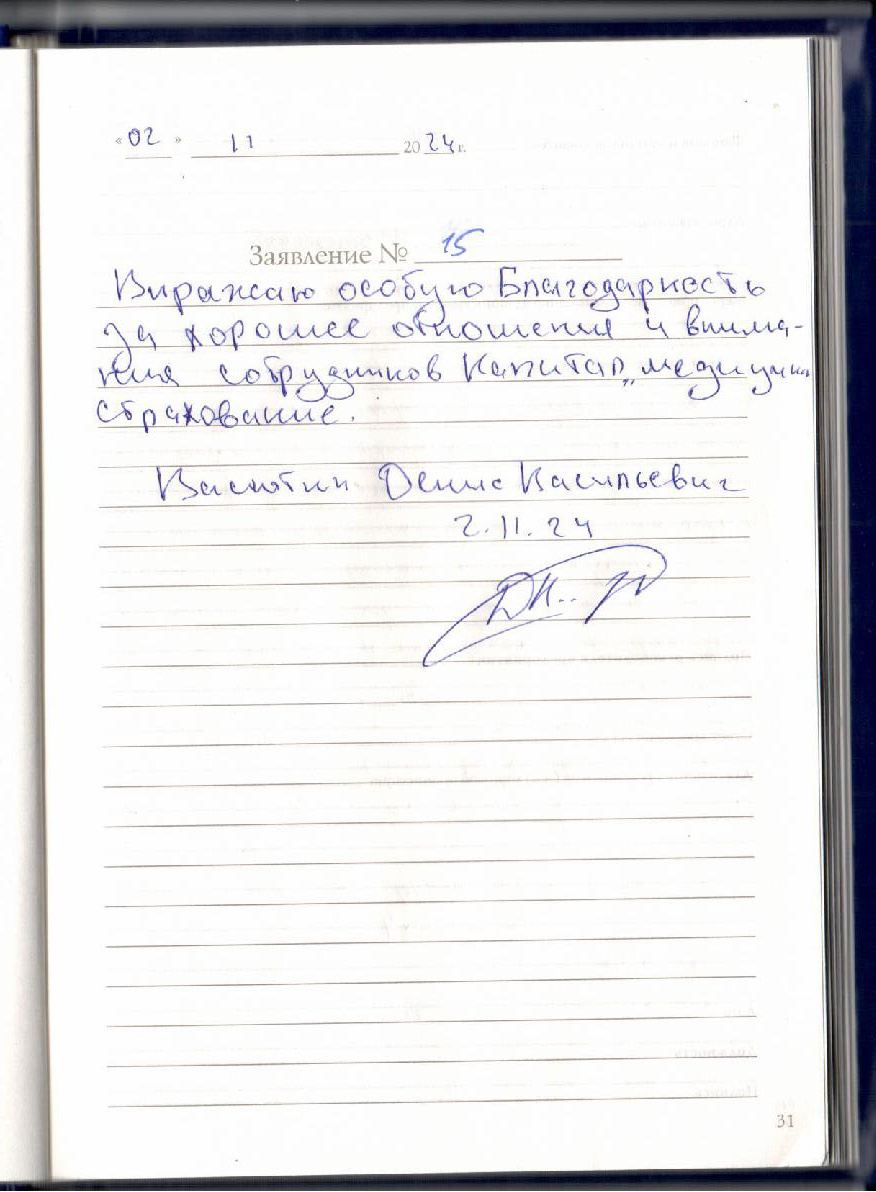 «02» 11 2024 г.
Заявление № 15
Виражаю особую Благодарность
за хорошее отношения и внима-
ния сотрудников Капитал „медицин
страхование.
Денис Васильевич
2.11.24
31